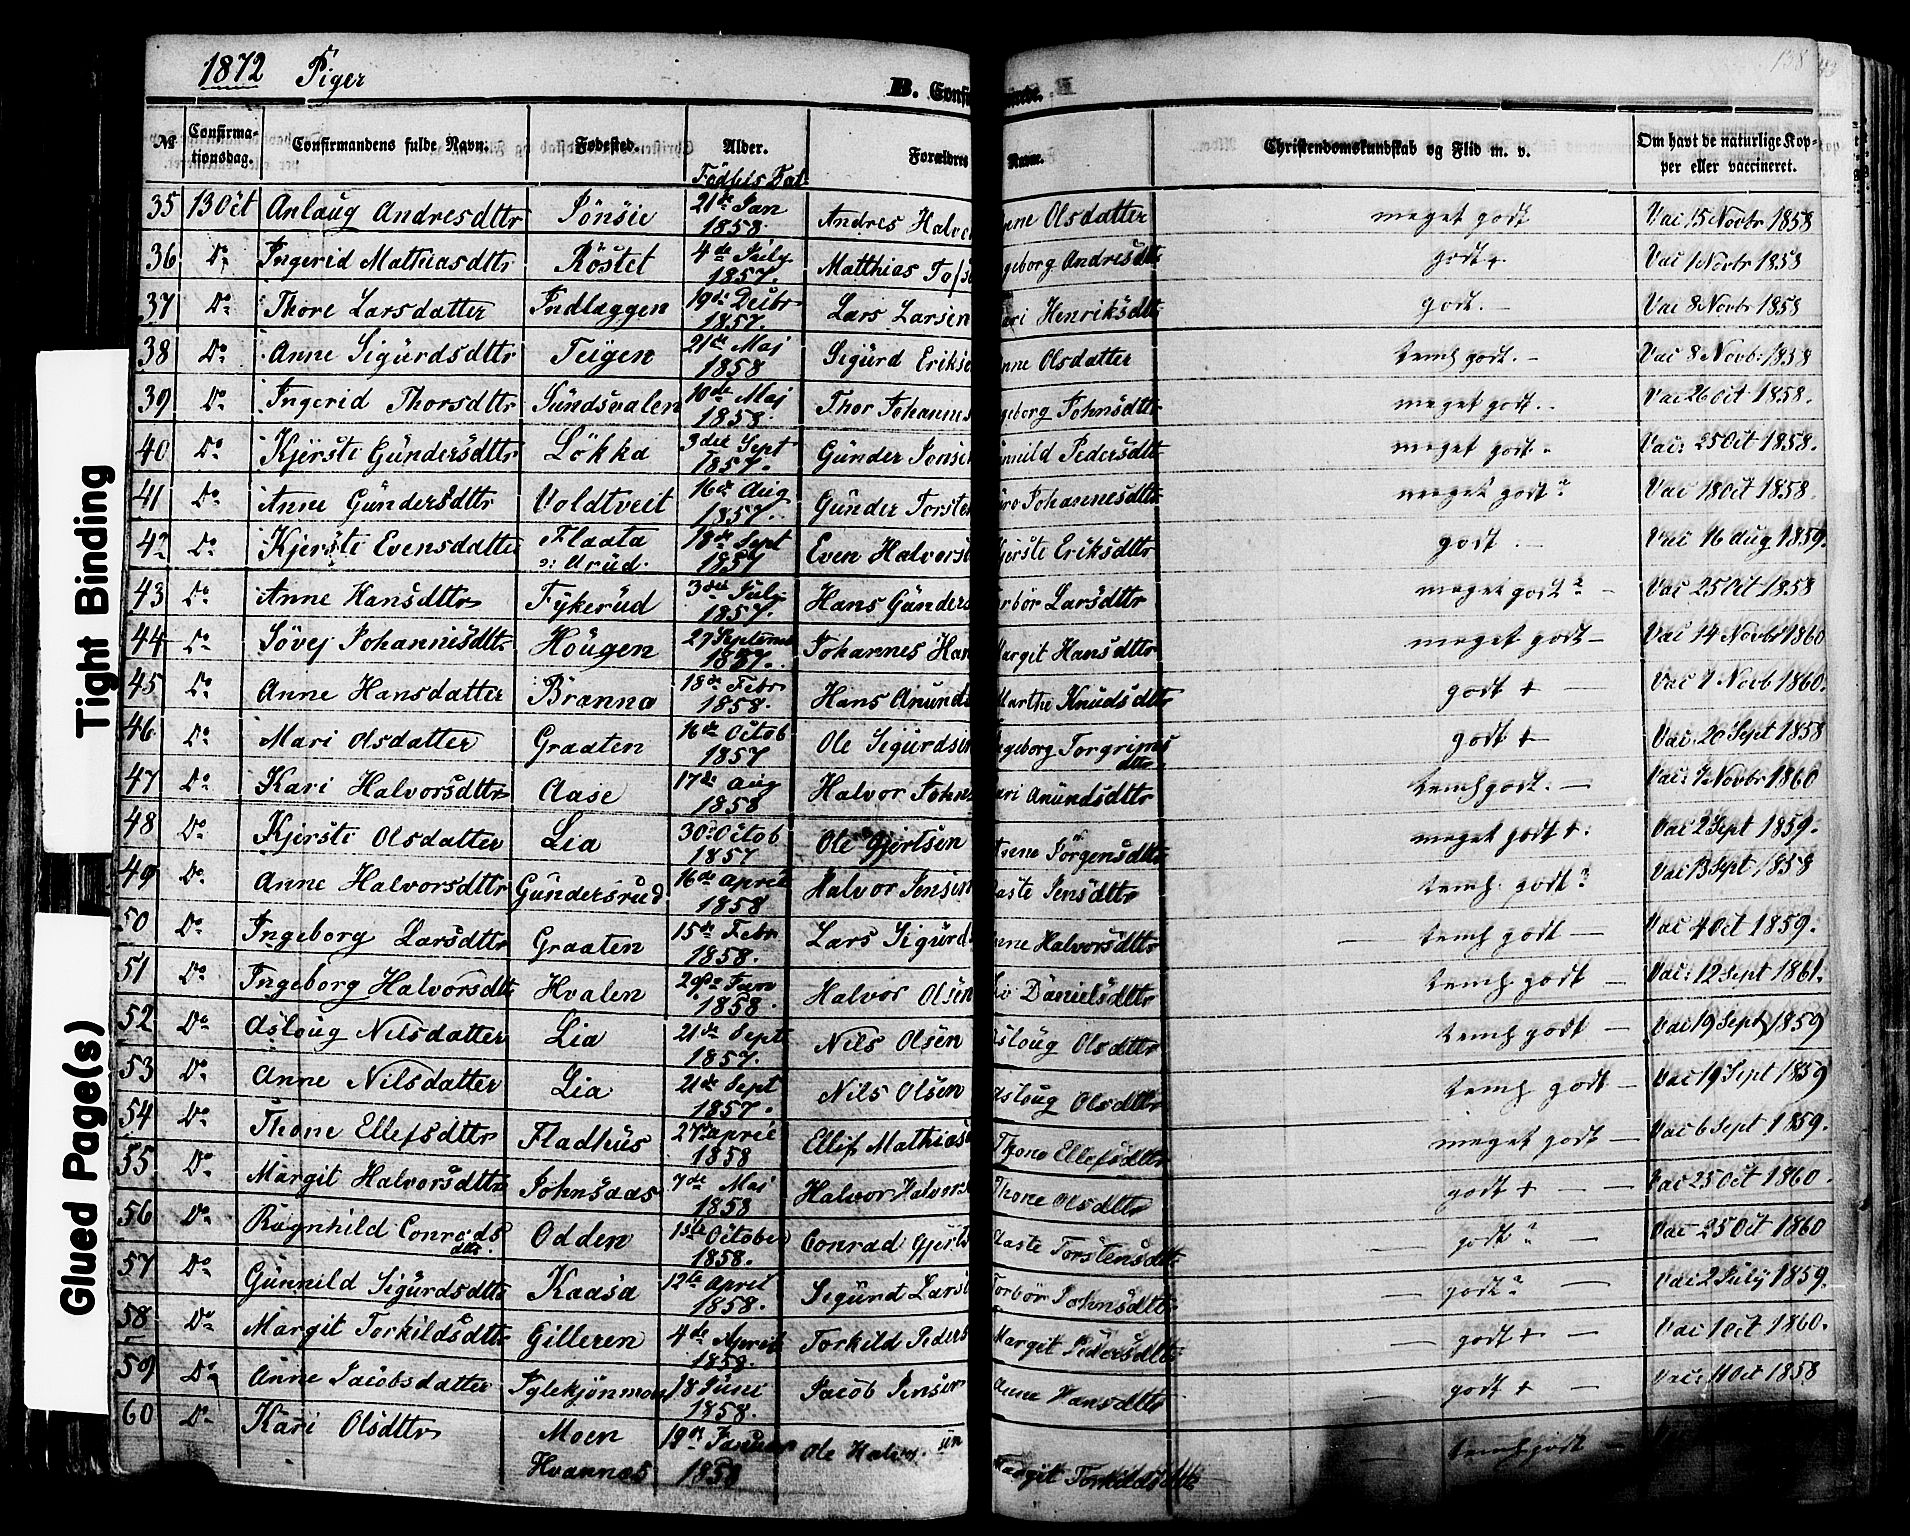 1872 Piger
138
B. Confi
Tight Binding
Glued Page(s)
№ Confirma-tionsdag. Confirmandens fulde Navn. Fødested. Alder. Forældres Navn. Christendomskundskab og Flid m. v. Om havt de naturlige Kop-per eller vaccineret.
Fødsels Dat
35 13 Oct Anlaug Andresdttr Jönsie 21de Jan 1858. Andres Halvo Olsdatter meget godt Vac 15 Novbr 1858
36 Do Ingerid Mathiasdttr Röstet 4de July 1857. Matthias geborg Andresdtt godt + Vac 1 Novbr 1858
37 Do Thore Larsdatter Indlæggen 19de Decbr 1857. Lars Larsen Henriksdtt godt. - Vac 8 Novbr 1858
38 Do Anne Sigurdsdttr Teigen 21de Maj 1858 Sigurd Erikse nne Olsdatter temh godt. - Vac 8 Novb: 1858
39 Do Ingerid Thorsdttr Sundsvalen 10de Maj 1858. Thor Johannes geborg Johnsdttr meget godt. Vac 26 Oct 1858.
40 Do Kjersti Gundersdttr Lökka 3die Sept 1857. Gunder Jense unnild Pedersdtt meget godt. Vac: 25 Oct 1858.
41 Do Anne Gundersdttr Voldtveit 16de Aug 1857. Gunder Torste Johannesdttr meget godt? Vac 18 Oct 1858.
42 Do Kjersti Evensdatter Flaata o: Urud. 18de Sept 1857 Even Halvors jersti Eriksdttr godt. - Vac 16 Aug 1859.
43 Do Anne Hansdttr Fykerud 3die July 1857. Hans Gunders orbör Larsdttr meget godt? - Vac 25 Oct 1858
44 Do Sövej Johannisdtt Höugen 27 Septemb 1857. Johannes Han Margit Hansdttr meget godt - Vac 14 Novbr 1860
45 Do Anne Hansdatter Brænna 18de Febr 1858. Hans Anunds Marthe Knudsdtt godt + - Vac 7 Novb 1860.
46 Do Mari Olsdatter Graaten 16de Octob 1857 Ole Sigurdsen ngeborg Torgrims dttr. godt + Vac. 20 Sept 1858
47 Do Kari Halvorsdttr Aase 17de Aug 1858 Halvor Johns ari Anundsdttr temh godt. - Vac: 7 Novbr 1860
48 Do Kjersti Olsdatter Lia 30: Octob 1857 Ole Gjertsen Jörgensdtt meget godt +. Vac 2 Sept 1859.
49 Do Anne Halvorsdttr Gundersrud. 16de April 1858 Halvor Jensen aste Jensdttr temh. godt? Vac 13 Sept 1858
50 Do Ingeborg Larsdttr Graaten 15de Febr 1858. Lars Sigurd nne Halvorsdttr - temh godt - Vac 4 Oct 1859.
51 Do Ingeborg Halvorsdtt Hvalen 1858. Halvor Olsen Danielsdttr temh. godt - Vac: 12 Sept 1861.
52 Do Asloug Nilsdatter Lia 21de Sept 1857. Nils Olsen Asloug Olsdttr temh godt - Vac 19 Sept 1859
53 Do Anne Nilsdatter Lia 21de Sept 1857. Nils Olsen Asloug Olsdttr temh godt - Vac 19 Sept 1859
54 Do Thone Ellefsdttr Fladhus 27 April 1858 Ellif Mathias Thone Ellefsdttr meget godt - Vac 6 Sept 1859.
55 Do Margit Halvorsdttr Johnsaas 7de Maj 1858 Halvor Halvors Thone Olsdttr godt + - Vac 25 Oct 1860
56 Do Ragnhild Conrads dttr. Odden 15de October 1858. Conrad Gjerts Aaste Torstensdtt - godt? - Vac 25 Oct 1860
57 Do Gunnild Sigurdsdttr Kaasa 12te April 1858. Sigurd Lars Torbör Johnsdttr - godt? - Vac 2 July 1859.
58 Do Margit Torkildsdttr Gilleren 4de April 1858. Torkild Peders Margit Pedersdttr - godt + - Vac 1 Oct 1860.
59 Do Anne Jacobsdatter 18 Juni 1858. Jacob Jensen Anne Hansdttr godt + - Vac: 11 Oct 1858
60 Do Kari Olsdttr Moen Hvannes 19de Januar 1858 Ole Halvor Margit Torkildsdttr temh godt -